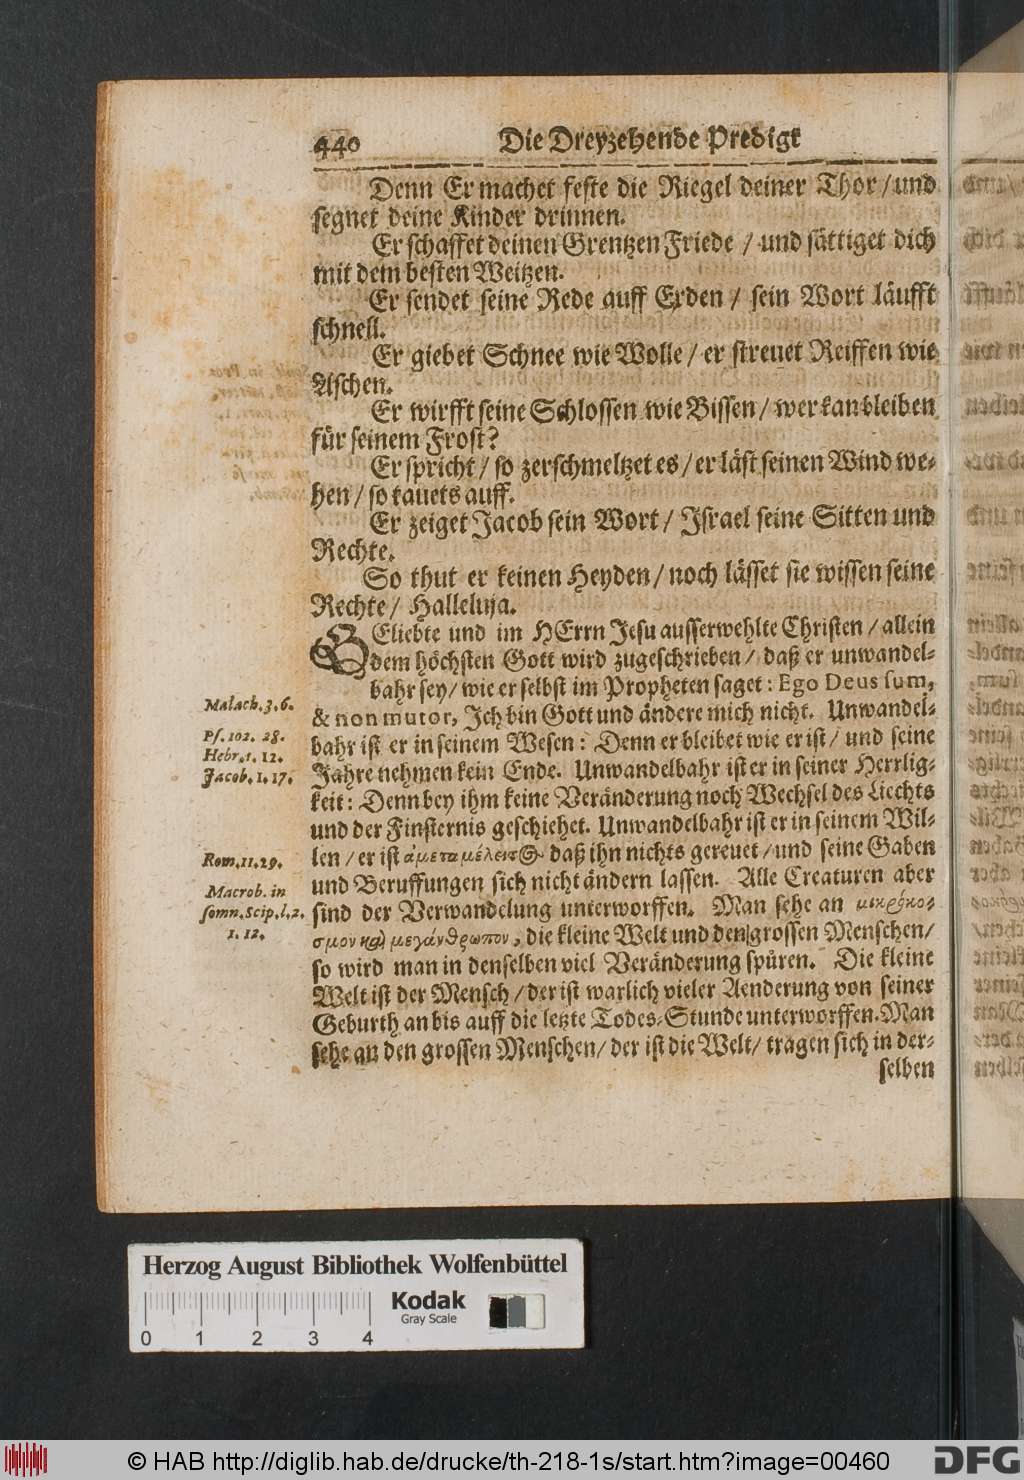 440 Die Dreyzehende Predigt
Denn Er machet feste die Riegel deiner Thor / und
segnet deine Kinder drinnen.
Er schaffet deinen Grentzen Friede / und sättiget dich
mit dem besten Weitzen.
Er sendet seine Rede auff Erden / sein Wort läufft
schnell.
Er giebet Schnee wie Wolle / er streuet Reiffen wie
Aschen.
Er wirfft seine Schlossen wie Bissen / wer kan bleiben
für seinem Frost?
Er spricht / so zerschmeltzet es / er läst seinen Wind we-
hen / so tauets auff.
Er zeiget Jacob sein Wort / Israel seine Sitten und
Rechte.
So thut er keinen Heyden / noch lässet sie wissen seine
Rechte / Halleluja.
GEliebte und im HErrn Jesu ausserwehlte Christen / allein
dem höchsten Gott wird zugeschrieben / daß er unwandel-
bahr sey / wie er selbst im Propheten saget: Ego Deus sum,
Malach. 3. 6.
& non mutor, Ich bin Gott und ändere mich nicht. Unwandel-
Ps. 102. 28.
bahr ist er in seinem Wesen: Denn er bleibet wie er ist / und seine
Hebr. 1. 12.
Jacob. 1. 17.
Jahre nehmen kein Ende. Unwandelbahr ist er in seiner Herrlig-
keit: Denn bey ihm keine Veränderung noch Wechsel des Liechts
und der Finsternis geschiehet. Unwandelbahr ist er in seinem Wil-
Rom. 11. 29.
len / er ist ἀμεταμέλειτος daß ihn nichts gereuet / und seine Gaben
und Beruffungen sich nicht ändern lassen. Alle Creaturen aber
Macrob. in
somn. Scip. l. 2.
1. 12.
sind der Verwandelung unterworffen. Man sehe an μικρόκο-
σμον καὶ μεγάνθρωπον, die kleine Welt und den grossen Menschen /
so wird man in denselben viel Veränderung spüren. Die kleine
Welt ist der Mensch / der ist warlich vieler Aenderung von seiner
Geburth an bis auff die letzte Todes-Stunde unterworffen. Man
sehe an den grossen Menschen / der ist die Welt / tragen sich in der-
selben
Herzog August Bibliothek Wolfenbüttel
Kodak
Gray Scale
0 1 2 3 4
© HAB http://diglib.hab.de/drucke/th-218-1s/start.htm?image=00460
DFG